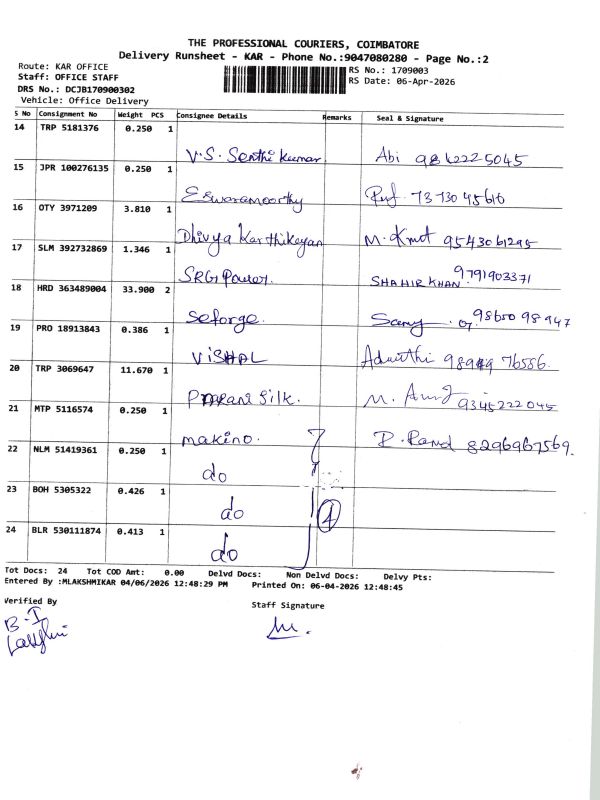 THE PROFESSIONAL COURIERS, COIMBATORE
Delivery Runsheet - KAR - Phone No.:9047080280 - Page No.:2
Route: KAR OFFICE
RS No.: 1709003
Staff: OFFICE STAFF
RS Date: 06-Apr-2026
DRS No.: DCJB170900302
Vehicle: Office Delivery
S No Consignment No Weight PCS Consignee Details Remarks Seal & Signature
14 TRP 5181376 0.250 1 V.S. Senthi Kumar Abi 9842225045
15 JPR 100276135 0.250 1 Eswaramoorthy 73730 45616
16 OTY 3971209 3.810 1 Dhivya Karthikeyan M. 9543061295
17 SLM 392732869 1.346 1 SRGi Power. SHAHIR KHAN 9791903371
18 HRD 363489004 33.900 2 Seforge. 98650 98947
19 PRO 18913843 0.386 1 ViSHAL 76586.
20 TRP 3069647 11.670 1 Silk. M. 9345222045
21 MTP 5116574 0.250 1 makino. 8296967569.
22 NLM 51419361 0.250 1 do
23 BOH 5305322 0.426 1 do 4
24 BLR 530111874 0.413 1 do
Tot Docs: 24 Tot COD Amt: 0.00 Delvd Docs: Non Delvd Docs: Delvy Pts:
Entered By :MLAKSHMIKAR 04/06/2026 12:48:29 PM Printed On: 06-04-2026 12:48:45
Verified By
Staff Signature
B.I